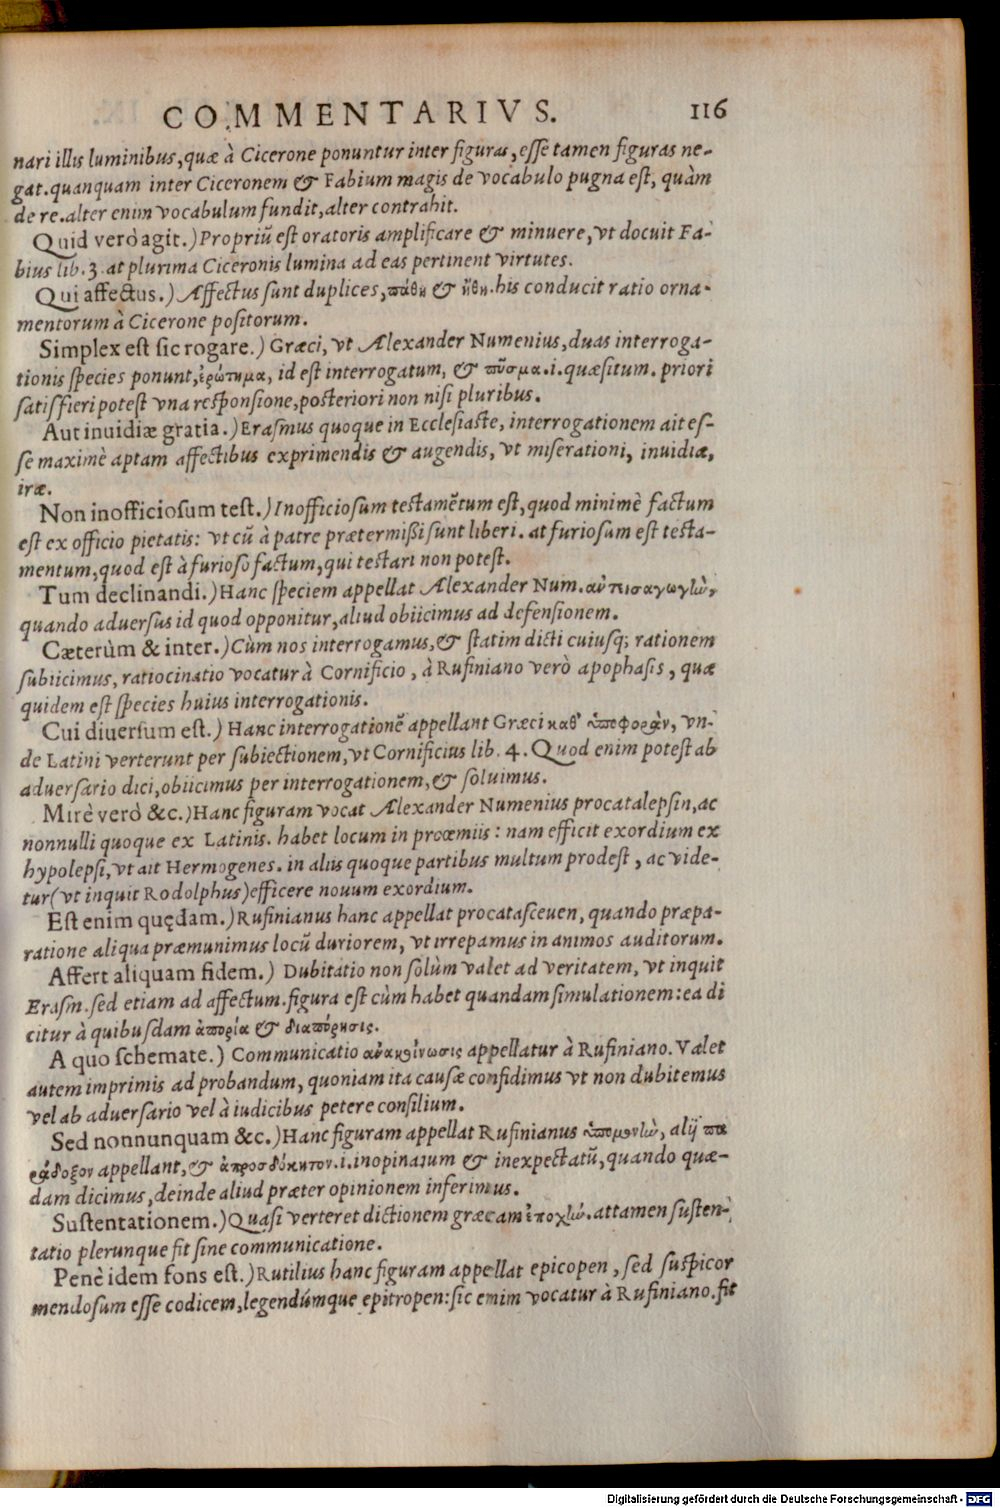 COMMENTARIVS. 116
nari illis luminibus, quæ à Cicerone ponuntur inter figuras, esse tamen figuras ne-
gat. quanquam inter Ciceronem & Fabium magis de vocabulo pugna est, quàm
de re. alter enim vocabulum fundit, alter contrahit.
Quid verò agit.) Propriũ est oratoris amplificare & minuere, vt docuit Fa-
bius lib. 3. at plurima Ciceronis lumina ad eas pertinent virtutes.
Qui affectus.) Affectus sunt duplices, πάθη & ἤθη. his conducit ratio orna-
mentorum à Cicerone positorum.
Simplex est sic rogare.) Græci, vt Alexander Numenius, duas interroga-
tionis species ponunt, ἐρώτημα, id est interrogatum, & πῦσμα .i. quæsitum. priori
satis fieri potest vna responsione, posteriori non nisi pluribus.
Aut inuidiæ gratia.) Erasmus quoque in Ecclesiaste, interrogationem ait es-
se maximè aptam affectibus exprimendis & augendis, vt miserationi, inuidiæ,
iræ.
Non inofficiosum test.) Inofficiosum testamẽtum est, quod minimè factum
est ex officio pietatis: vt cũ à patre prætermissi sunt liberi. at furiosum est testa-
mentum, quod est à furioso factum, qui testari non potest.
Tum declinandi.) Hanc speciem appellat Alexander Num. ἀντισαγωγὼ,
quando aduersus id quod opponitur, aliud obiicimus ad defensionem.
Cæterùm & inter.) Cùm nos interrogamus, & statim dicti cuiusq; rationem
subiicimus, ratiocinatio vocatur à Cornificio, à Rufiniano verò apophasis, quæ
quidem est species huius interrogationis.
Cui diuersum est.) Hanc interrogationẽ appellant Græci καθ' ὑποφορὰν, vn-
de Latini verterunt per subiectionem, vt Cornificius lib. 4. Quod enim potest ab
aduersario dici, obiicimus per interrogationem, & soluimus.
Mirè verò &c.) Hanc figuram vocat Alexander Numenius procatalepsin, ac
nonnulli quoque ex Latinis. habet locum in proœmiis: nam efficit exordium ex
hypolepsi, vt ait Hermogenes. in aliis quoque partibus multum prodest, ac vide-
tur (vt inquit Rodolphus) efficere nouum exordium.
Est enim quędam.) Rufinianus hanc appellat procatasceuen, quando præpa-
ratione aliqua præmunimus locũ duriorem, vt irrepamus in animos auditorum.
Affert aliquam fidem.) Dubitatio non solùm valet ad veritatem, vt inquit
Erasm. sed etiam ad affectum. figura est cùm habet quandam simulationem: ea di
citur à quibusdam ἀπορία & διαπόρησις.
A quo schemate.) Communicatio ἀνακοίνωσις appellatur à Rufiniano. Valet
autem imprimis ad probandum, quoniam ita causæ confidimus vt non dubitemus
vel ab aduersario vel à iudicibus petere consilium.
Sed nonnunquam &c.) Hanc figuram appellat Rufinianus ὑπομονὼ, alij πα
ράδοξον appellant, & ἀπροσδόκητον .i. inopinatum & inexpectatũ, quando quæ-
dam dicimus, deinde aliud præter opinionem inferimus.
Sustentationem.) Quasi verteret dictionem græcam ἐποχὼ. attamen susten-
tatio plerunque fit sine communicatione.
Penè idem fons est.) Rutilius hanc figuram appellat epicopen, sed suspicor
mendosum esse codicem, legendúmque epitropen: sic enim vocatur à Rufiniano. fit
Digitalisierung gefördert durch die Deutsche Forschungsgemeinschaft - DFG